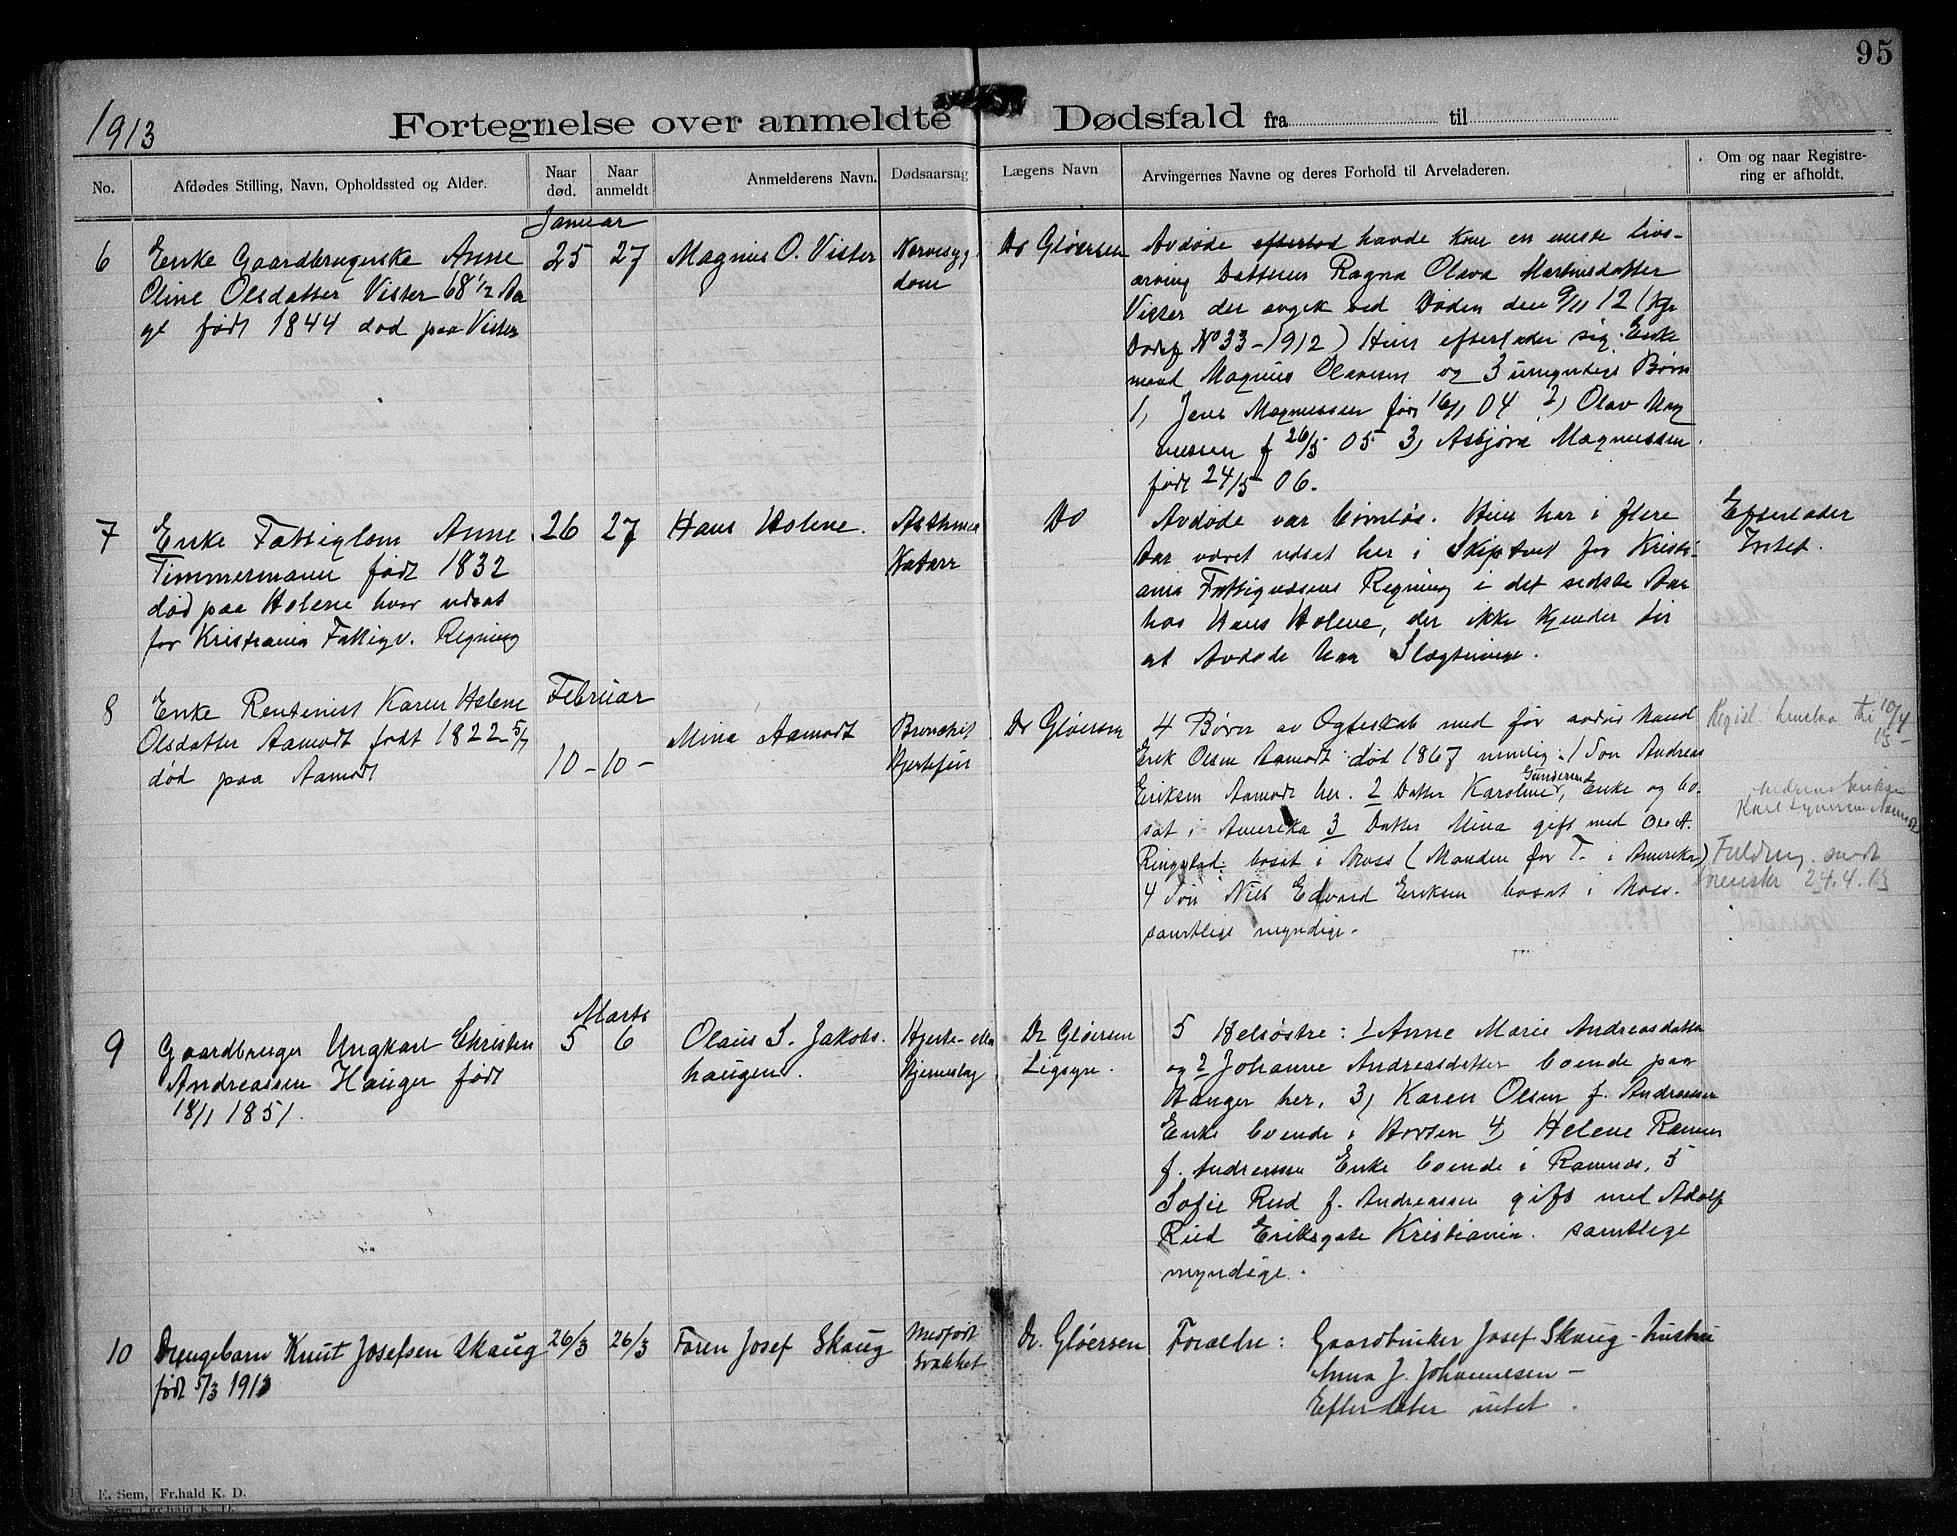 95
1913
Fortegnelse over anmeldte Dødsfald fra til
No.
Afdødes Stilling, Navn, Opholdssted og Alder.
Naar død.
Naar anmeldt
Anmelderens Navn.
Dødsaarsag
Lægens Navn
Arvingernes Navne og deres Forhold til Arveladeren.
Om og naar Registre-
ring er afholdt.
Januar
6
Enke Gaardbrugerske Anne
Oline Olsdatter Vister 68 1/2 Aar
gl født 1844 død paa Vister
25
27
Magnus O. Vister
Nervesyg
dom
Dr Gløersen
Avdøde efterlod havde kun en eneste livs-
arving Datteren Ragna Olava Martinsdatter
Vister der avgik ved Døden den 9/11 12 (Kfr
Dødsf No 33-1912) Hun efterlader sig Enke
mand Magnus Olavesen og 3 umyndige Børn
1, Jens Magnussen født 16/1 04 2, Olav Mag
nussen f 26/5 05 3, Asbjørn Magnussen
født 24/5 06.
7
Enke Fattiglem Anne
Timmermann født 1832
død paa Holene hvor udsat
for Kristiania Fattigv. Regning
26
27
Hans Holene.
Asthma
Katarr
Do
Avdøde var barnløs. Hun har i flere
Aar været udsat her i Skiptvet for Kristi-
ania Fattigvæsens Regning i det sidste Aar
hos Hans Holene, der ikke kjender til
at Avdøde har Slægtninge.
Efterlader
Intet.
Februar
8
Enke Rentenist Karen Helene
Olsdatter Aamodt født 1822 5/7
død paa Aamodt
10-
10-
Mina Aamodt
Bronchit
Hjertefeil
Dr Gløersen
4 Børn av Ogteskab med før avdød Mand
Erik Olsen Aamodt død 1867 nemlig: 1 Søn Andreas
Eriksen Aamodt her. 2 Datter Karoline Gundersen, Enke og bo-
sat i Amerika 3 Datter Mina gift med Ole A.
Ringstad bosat i Moss (Manden for T. i Amerika)
4 Søn Nils Edvard Eriksen bosat i Moss.
samtlige myndige.
Regist. 10/4
13-
Andreas Eriksen
Karl
24.4.13
Marts
9
Gaardbruger Ungkarl Christen
Andreassen Hauger født
18/1 1851.
5
6
Olaus S. Jakobs.
haugen.
Hjerte- eller
Hjerneslag
Dr Gløersen
Ligsyn.
5 Helsøstre: 1 Anne Marie Andreasdatter
og 2 Johanne Andreasdatter boende paa
Hauger her, 3, Karen Olsen f. Andreassen
Enke boende i Horten 4, Helene Ramnes
f. Andreassen Enke boende i Ramnes, 5
Sofie Rud f. Andreassen gift med Adolf
Rud Eriksgate Kristiania. samtlige
myndige.
10
Drengebarn Knut Josefsen Skaug
født 5/3 1913
26/3
26/3
Faren Josef Skaug
Medfødt
svakhet
Dr. Gløersen
Forældre: Gaardbruker Josef Skaug - hustru
Anna J. Johannesen -
Efterlater intet.
E. Sem, Fr.hald K. D.
E. Sem, Fr.hald K. D.